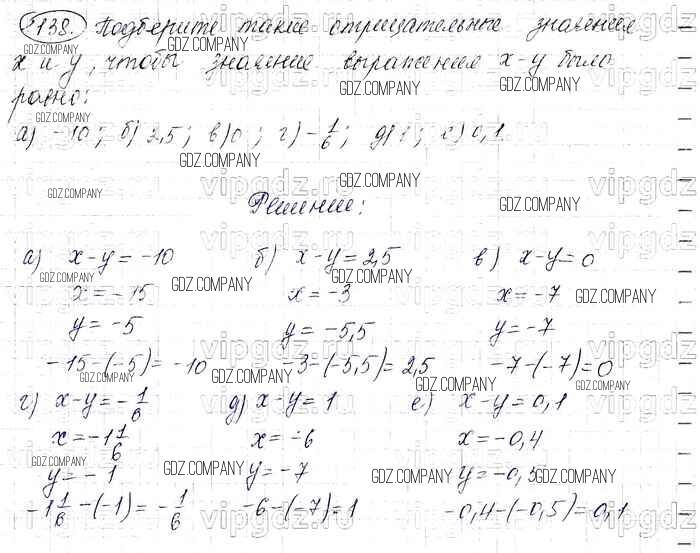 1138. Подберите такие отрицательные значения
x и y, чтобы значение выражения x-y было
равно:
а) -10; б) 2,5; в) 0; г) -1/6; д) 1; е) 0,1
Решение:
а) x-y = -10 б) x-y = 2,5 в) x-y = 0
x = -15 x = -3 x = -7
y = -5 y = -5,5 y = -7
-15-(-5) = -10 -3-(-5,5) = 2,5 -7-(-7) = 0
г) x-y = -1/6 д) x-y = 1 е) x-y = 0,1
x = -1 1/6 x = -6 x = -0,4
y = -1 y = -7 y = -0,5
-1 1/6 -(-1) = -1/6 -6-(-7) = 1 -0,4-(-0,5) = 0,1